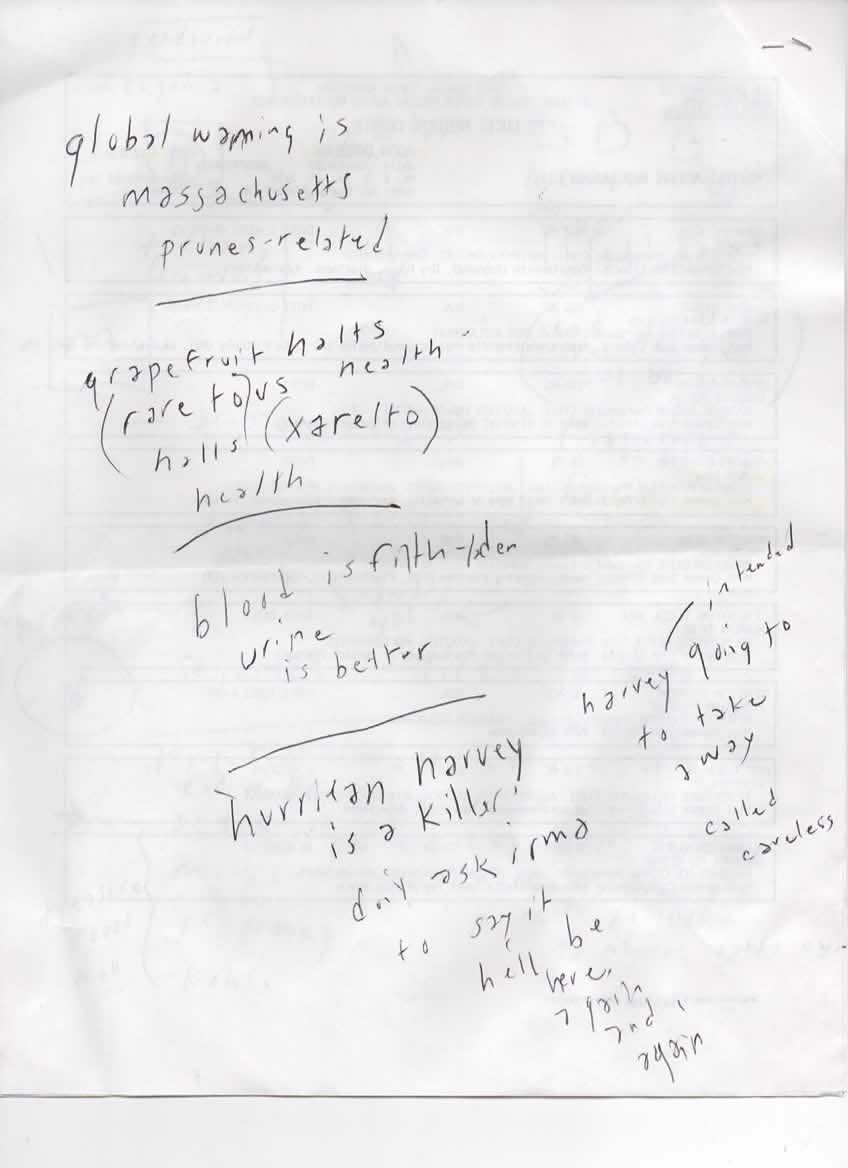 global warming is
massachusetts
prunes-related
grapefruit halts
health
(rare to) vs
halls (xarelto)
health
blood is filth-laden
urine
is better
hurrican harvey
is a killer!
don't ask irma
to say it
he'll be
here.
again
and
again
intended
harvey going to
to take
away
called
careless